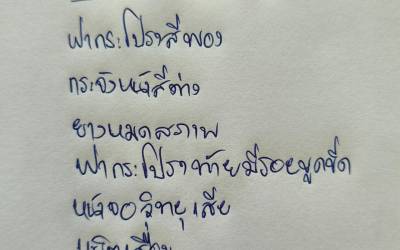 ฝากระโปรงสีพอง
กระจังหน้าสีด่าง
ยางหมดสภาพ
ฝากระโปรงท้ายมีรอยขูดขีด
หน้าจอวิทยุเสีย